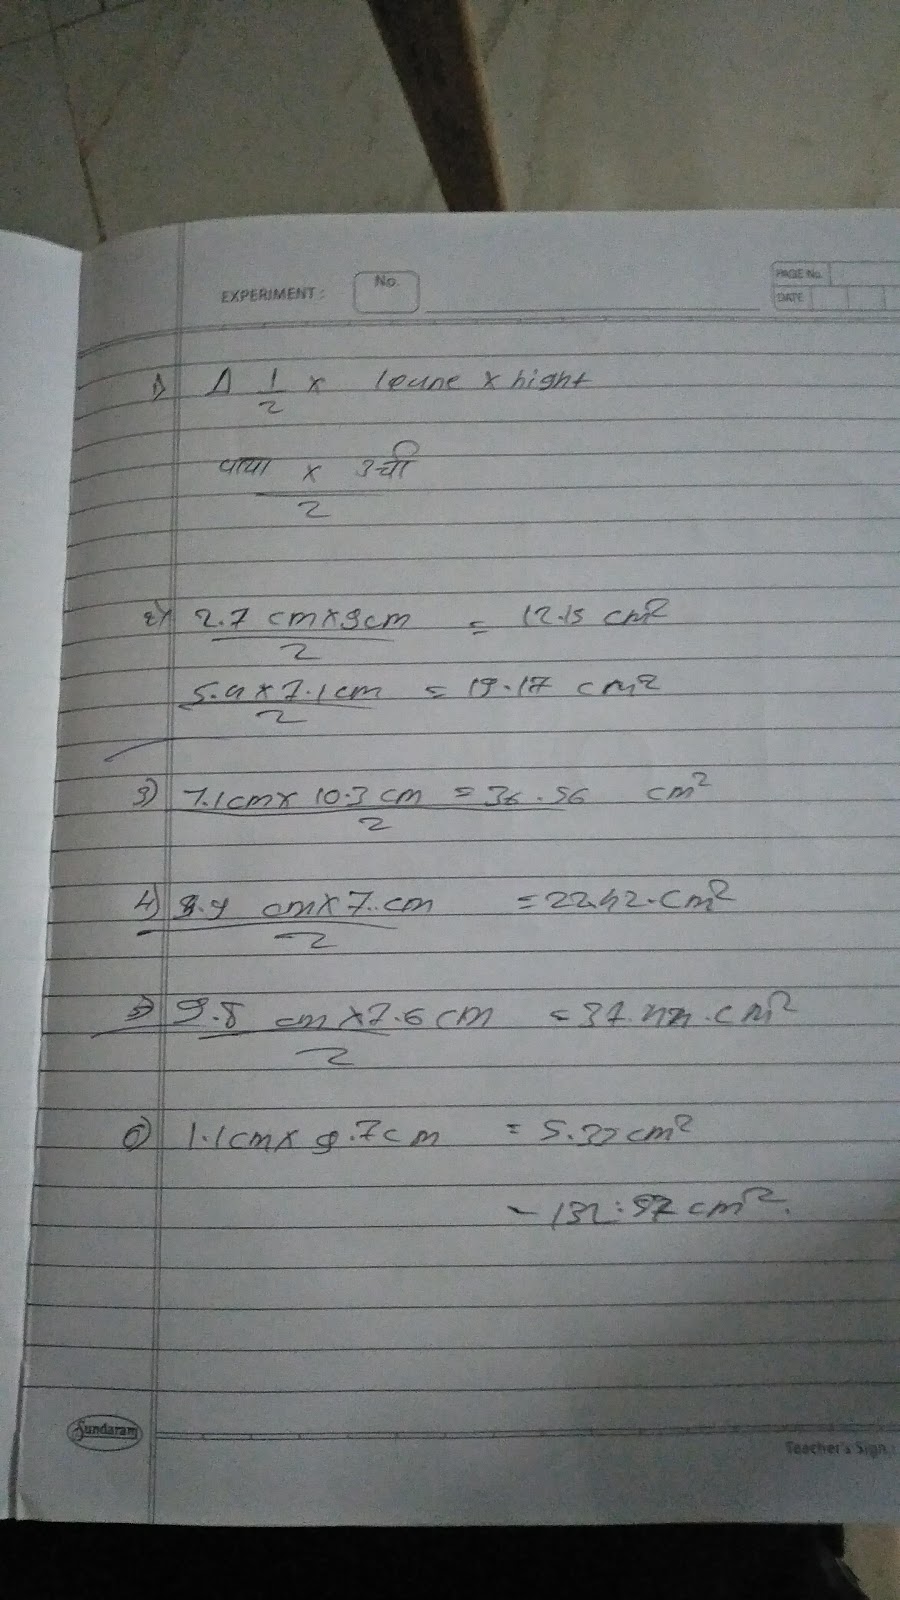 EXPERIMENT : No.
PAGE No.
DATE
1) Δ 1/2 × × hight
पाया × उची
2
2) 2.7 cm×9cm = 12.15 cm²
2
5.4 × 7.1cm = 19.17 cm²
2
3) 7.1cm× 10.3 cm = 36.56 cm²
2
4) cm×7.cm = cm²
2
5) 9.8 cm ×7.6 cm = cm²
2
6) 1.1cm× 9.7cm = cm²
cm².
Sundaram
Teacher's Sign.